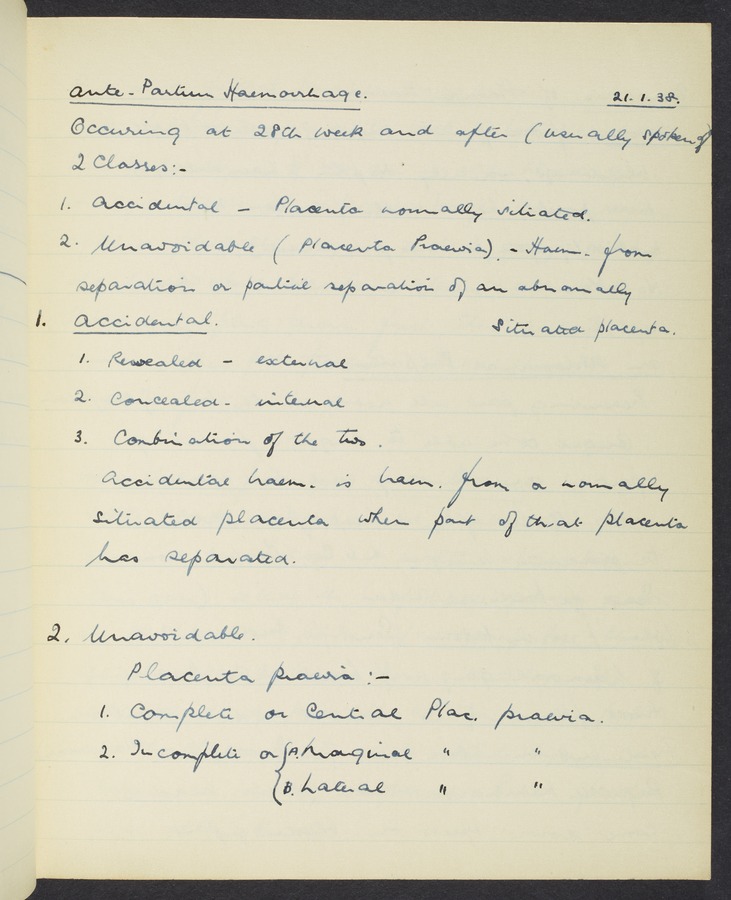 Ante-Partum Haemorrhage. 21.1.38.
Occuring at 28th week and after (usually spoken of
2 Classes:-
1. Accidental - Placenta normally situated.
2. Unavoidable (Placenta Praevia). - Haem. from
separation or partial separation of an abnormally
situated placenta.
1. Accidental.
1. Revealed - external
2. Concealed - internal
3. Combination of the two.
Accidental haem. is haem. from a normally
situated placenta when part of that placenta
has separated.
2. Unavoidable.
Placenta praevia :-
1. Complete or Central Plac. praevia.
2. Incomplete or { A. Marginal " "
{ B. Lateral " "